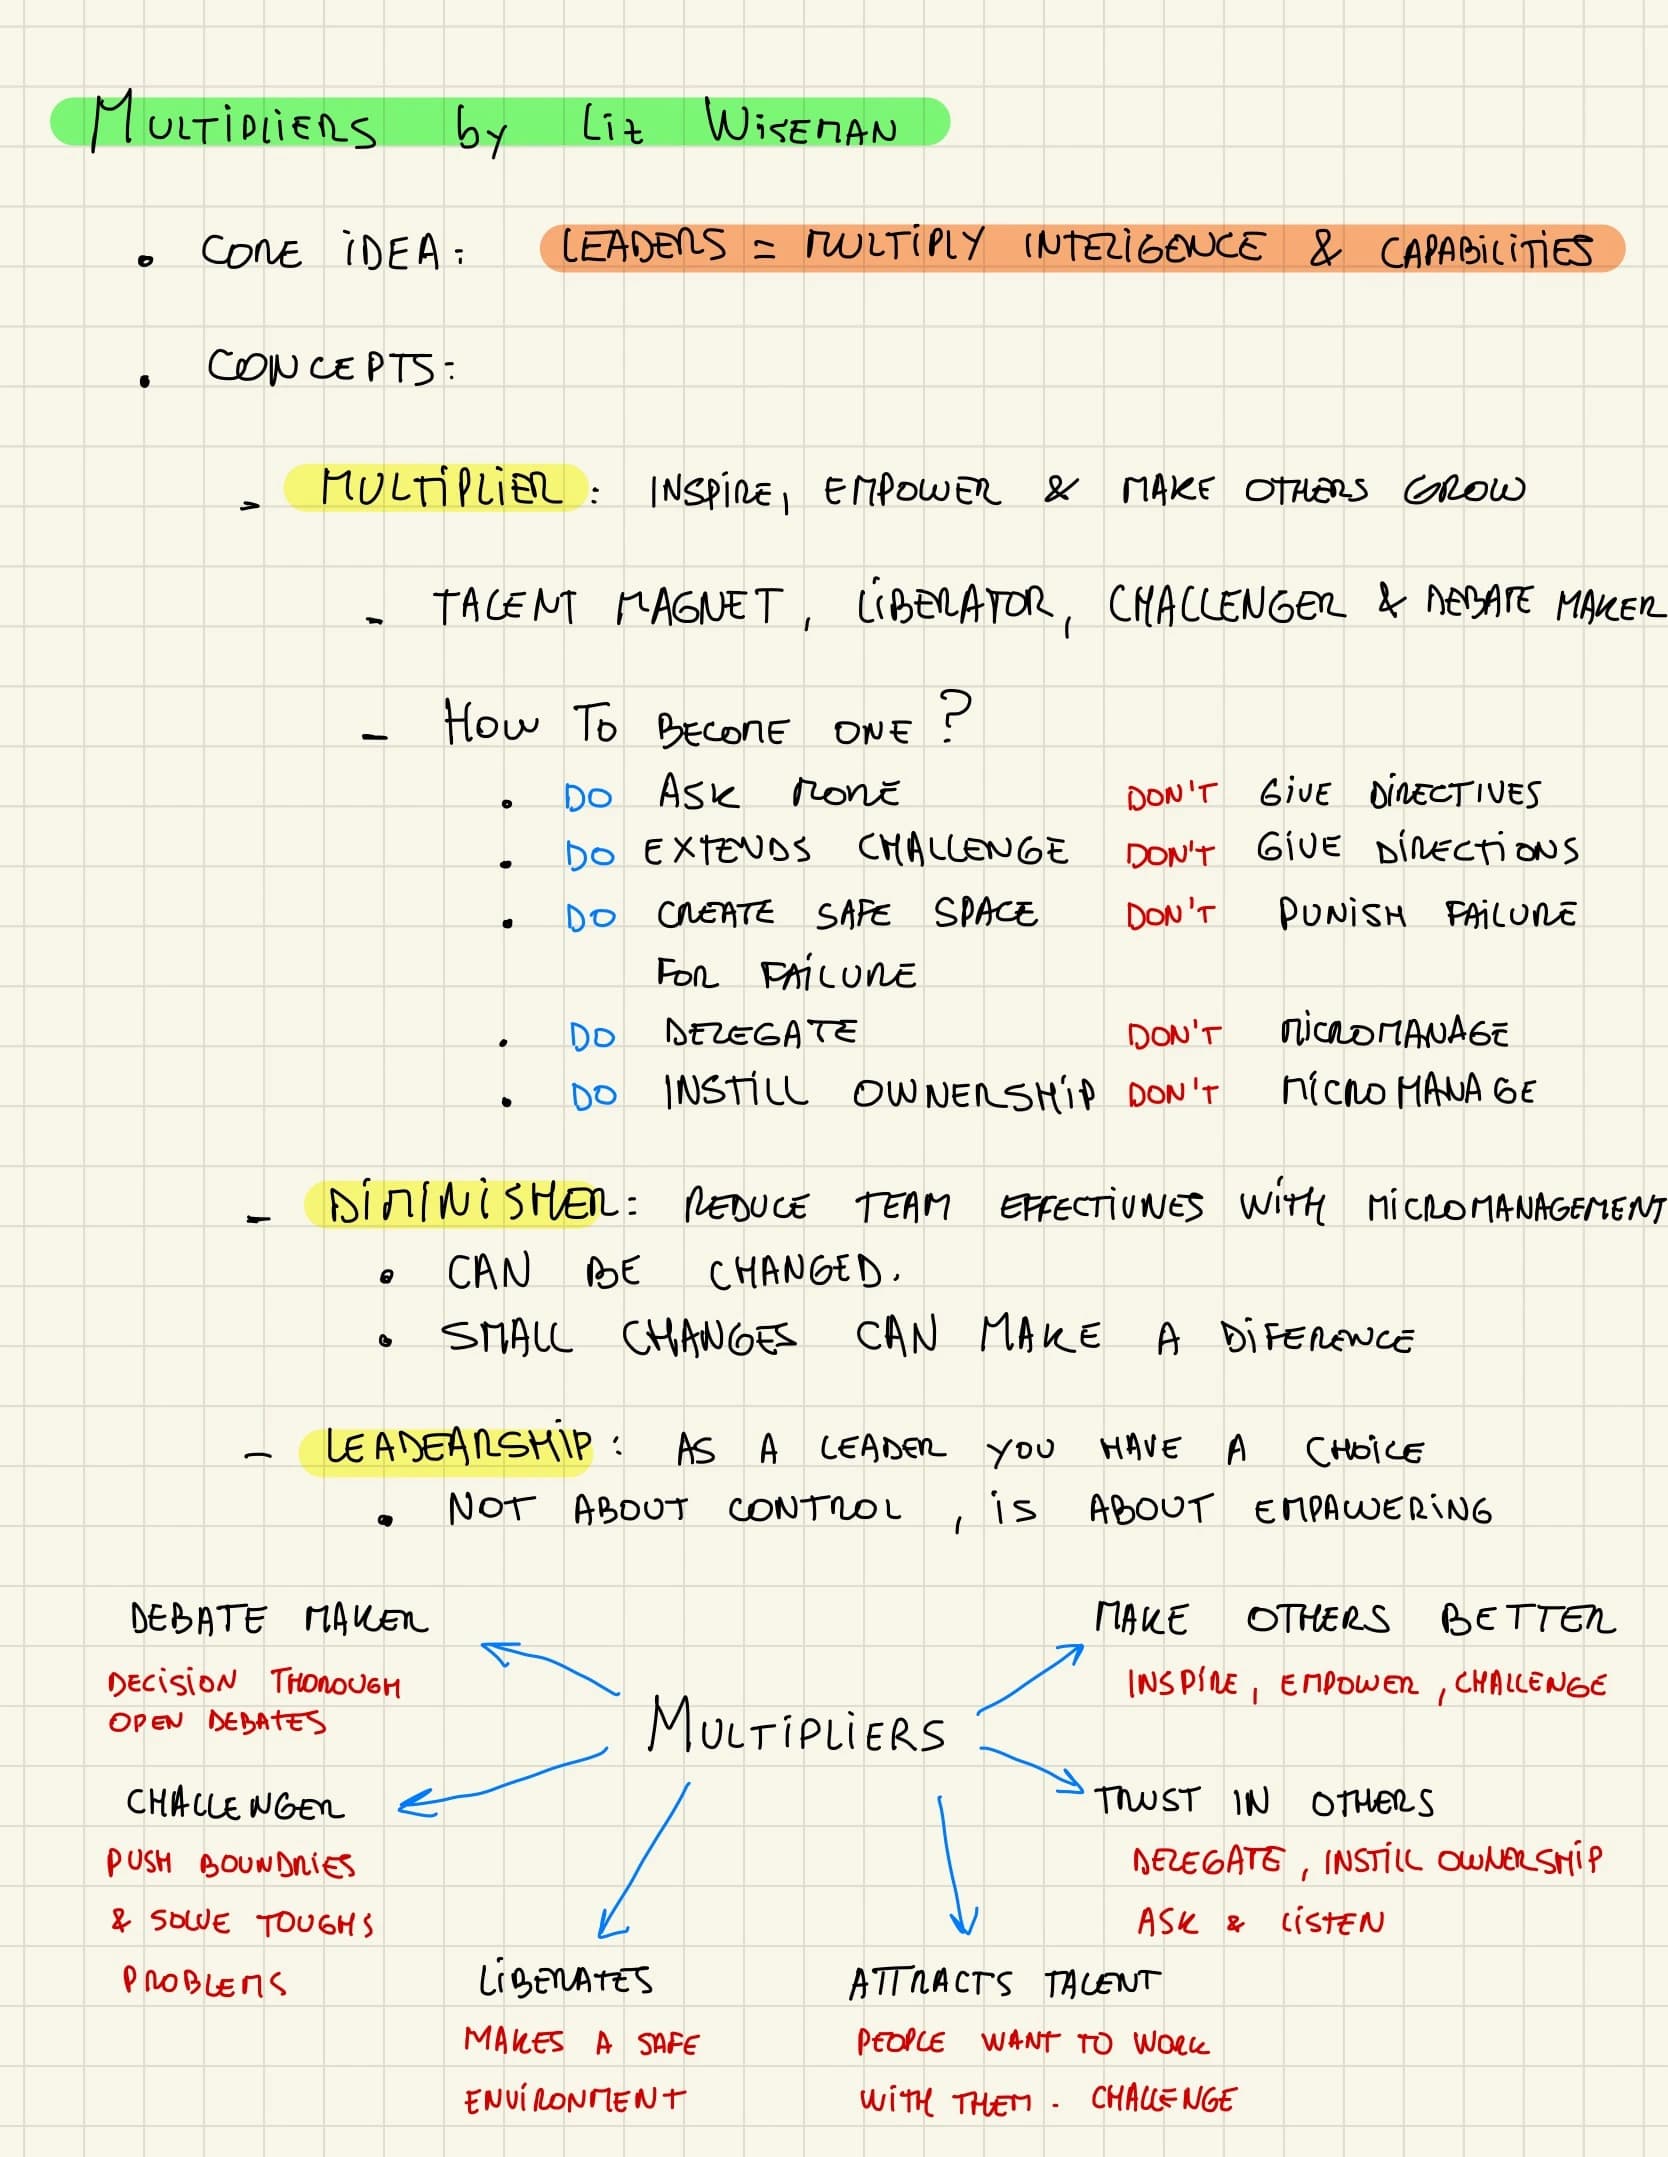 MULTIPLIERS by Liz WISEMAN
• CORE IDEA: LEADERS = MULTIPLY INTELIGENCE & CAPABILITIES
• CONCEPTS:
- MULTIPLIER: INSPIRE, EMPOWER & MAKE OTHERS GROW
- TALENT MAGNET, LIBERATOR, CHALLENGER & DEBATE MAKER
- HOW TO BECOME ONE?
• DO ASK MORE DON'T GIVE DIRECTIVES
• DO EXTENDS CHALLENGE DON'T GIVE DIRECTIONS
• DO CREATE SAFE SPACE DON'T PUNISH FAILURE
FOR FAILURE
• DO DELEGATE DON'T MICROMANAGE
• DO INSTILL OWNERSHIP DON'T MICROMANAGE
- DIMINISHER: REDUCE TEAM EFFECTIVNES WITH MICROMANAGEMENT
• CAN BE CHANGED.
• SMALL CHANGES CAN MAKE A DIFERENCE
- LEADEARSHIP: AS A LEADER YOU HAVE A CHOICE
• NOT ABOUT CONTROL, IS ABOUT EMPAWERING
DEBATE MAKER
DECISION THOROUGH
OPEN DEBATES
MAKE OTHERS BETTER
INSPIRE, EMPOWER, CHALLENGE
MULTIPLIERS
CHALLENGER
PUSH BOUNDRIES
& SOLVE TOUGHS
PROBLEMS
TRUST IN OTHERS
DELEGATE, INSTILL OWNERSHIP
ASK & LISTEN
LIBERATES
MAKES A SAFE
ENVIRONMENT
ATTRACTS TALENT
PEOPLE WANT TO WORK
WITH THEM. CHALLENGE